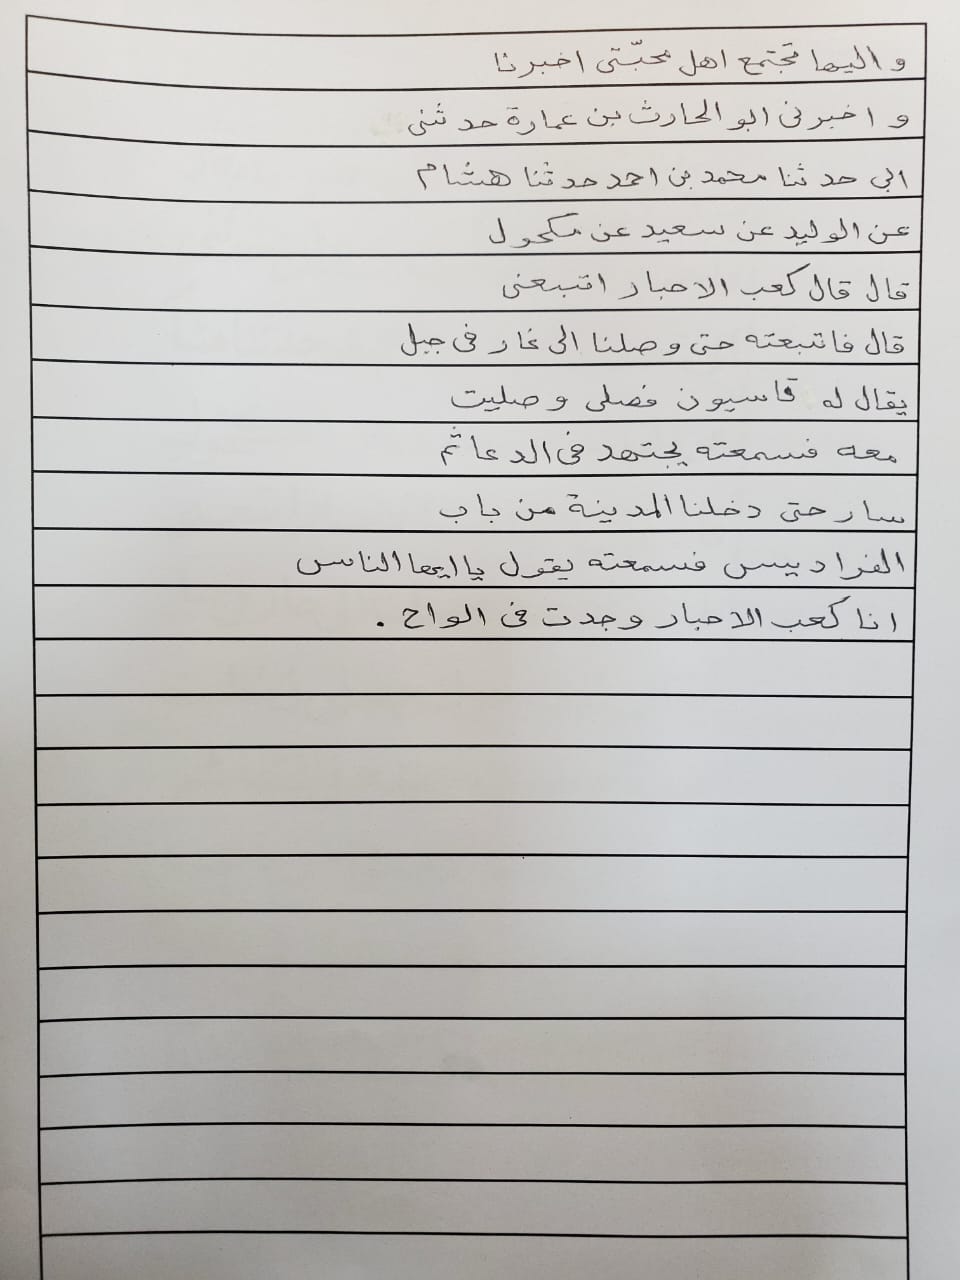 و اليها تجتمع اهل محبّتى اخبرنا
و اخبرنى ابو الحارث بن عمارة حدثنى
ابى حدثنا محمد بن احمد حدثنا هشام
عن الوليد عن سعيد عن مكحول
قال قال كعب الاحبار اتبعنى
قال فاتبعته حتى وصلنا الى غار فى جبل
يقال له قاسيون فصلى وصليت
معه فسمعته يجتهد فى الدعا ثم
سار حتى دخلنا المدينة من باب
الفراديس فسمعته يقول يا ايها الناس
انا كعب الاحبار وجدت فى الواح .